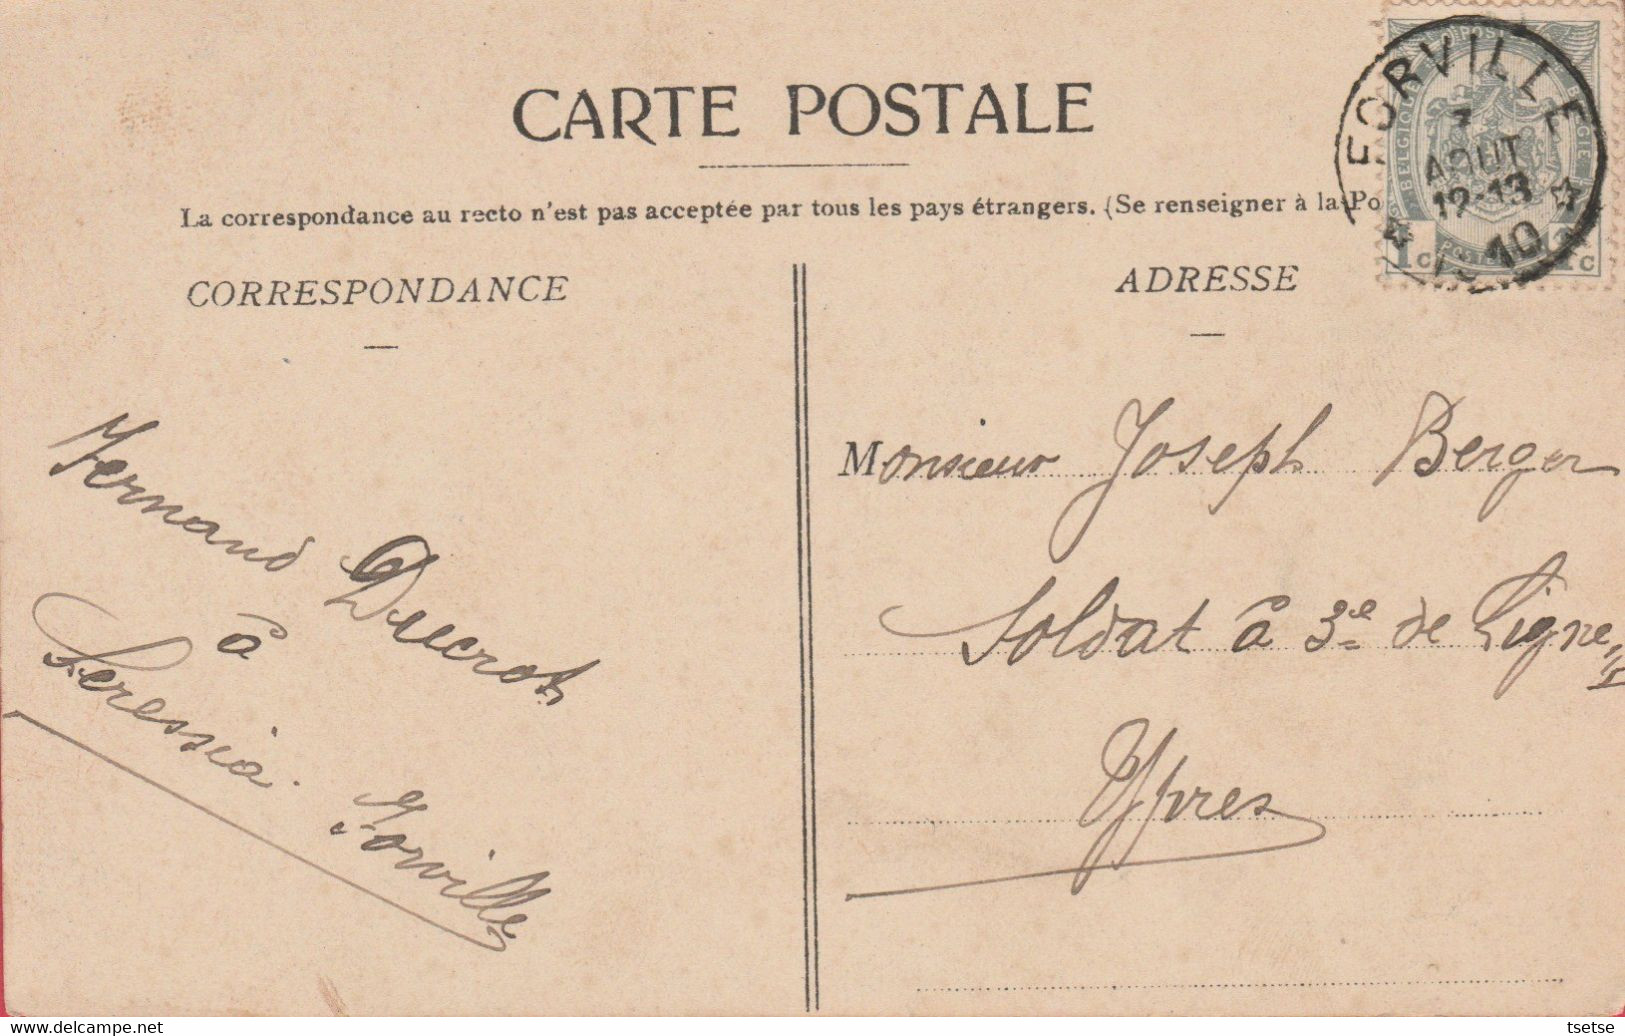 CARTE POSTALE
La correspondance au recto n'est pas acceptée par tous les pays étrangers. (Se renseigner à la Po
CORRESPONDANCE
ADRESSE
FORVILLE
AOUT
12-13
10
BELGIQUE
POSTE
BELGIE
1c
1c
Fernand Ducrot
à
Seressia.
Forville
Monsieur Joseph Berger
Soldat à 3e de Ligne
Ypres
tsetse